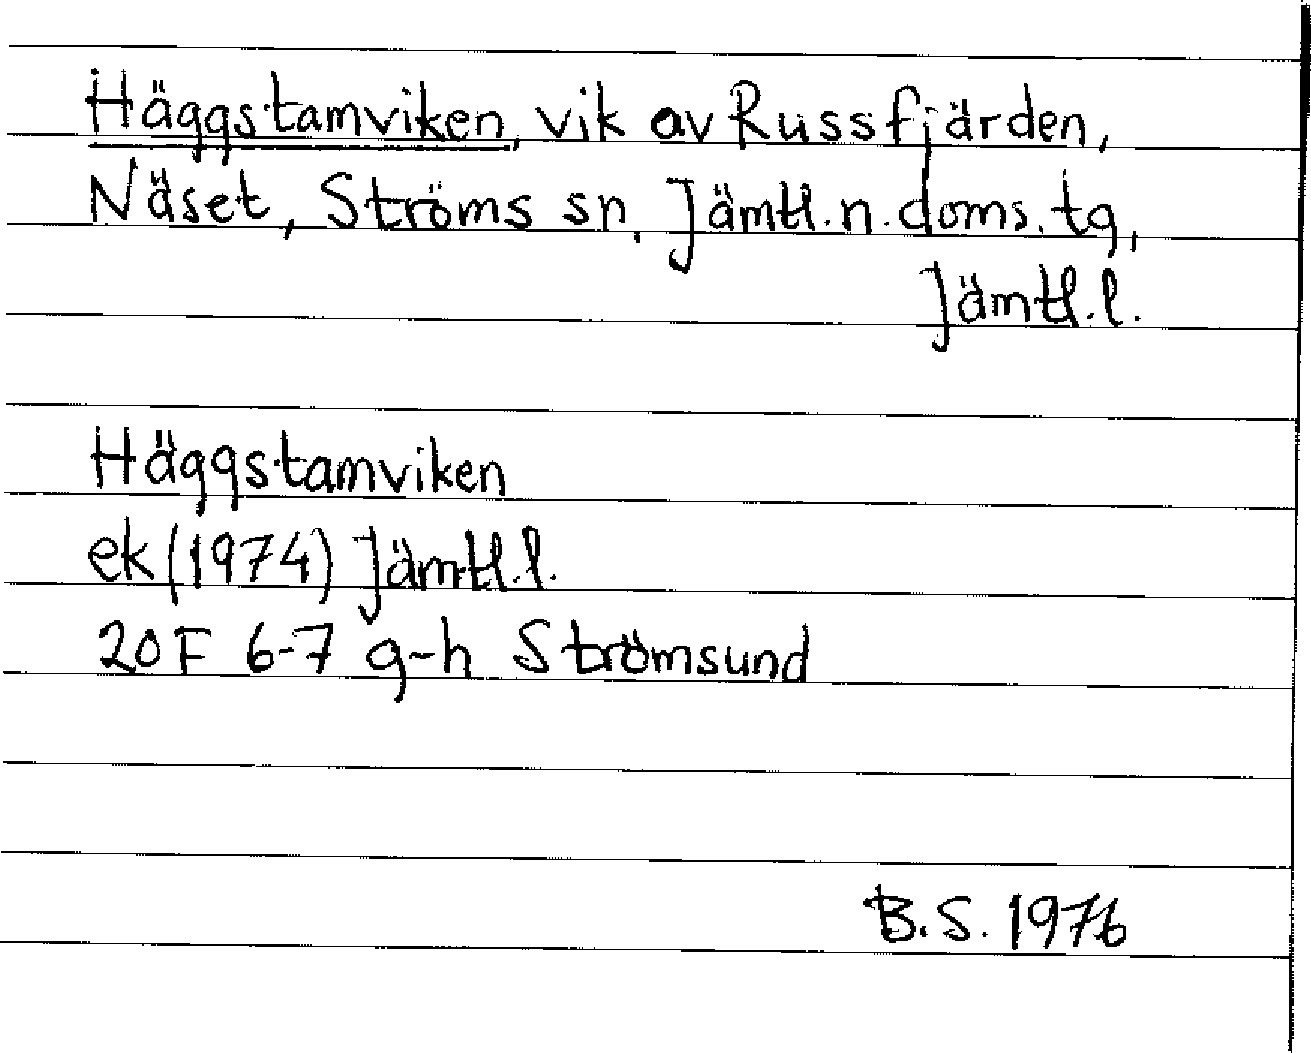 Häggstamviken, vik av Russfjärden,
Näset, Ströms sn, Jämtl.n.doms.tg,
Jämtl.l.
Häggstamviken
ek (1974) Jämtl.l.
20F 6-7 g-h Strömsund
B.S. 1976